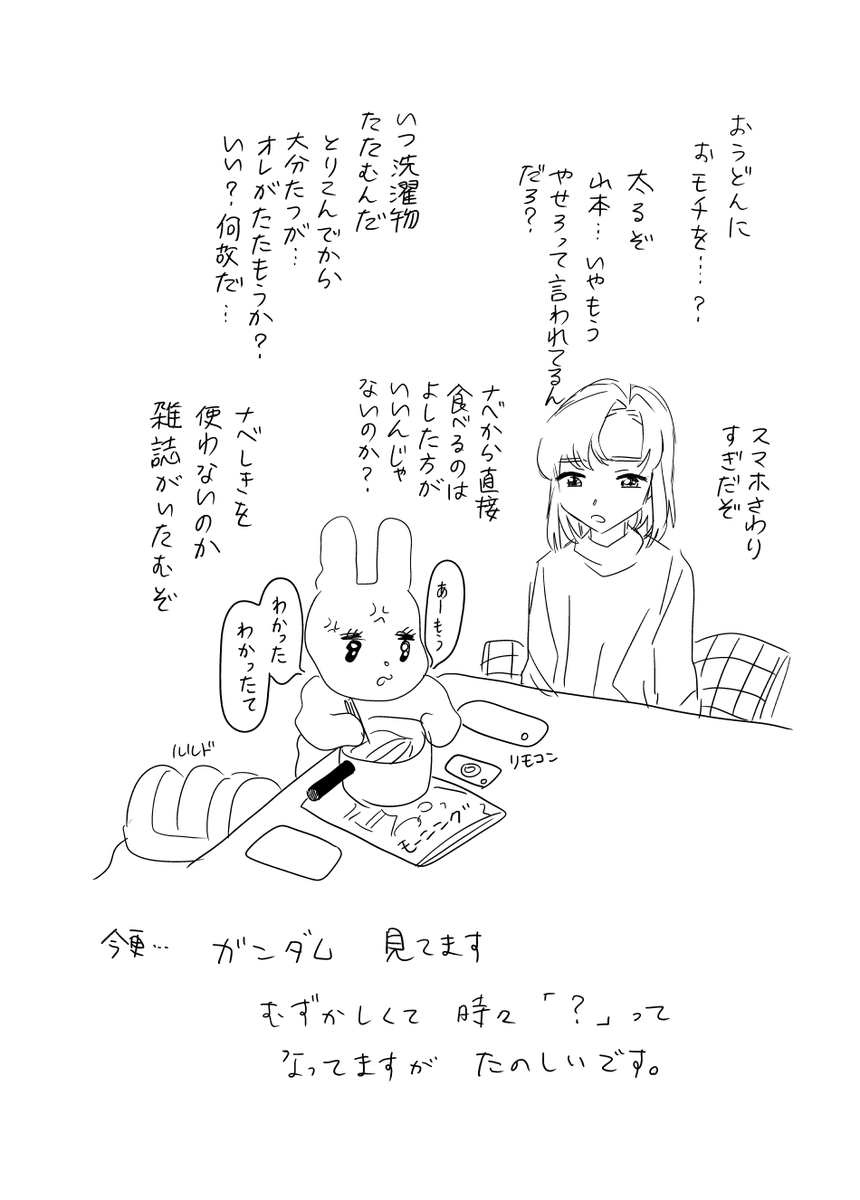 おうどんに
おモチを…？
太るぞ
山本…いやもう
やせろって言われてるん
だろ？
いつ洗濯物
たたむんだ
とりこんでから
大分たつが…
オレがたたもうか？
いい？何故だ…
スマホさわり
すぎだぞ
ナベから直接
食べるのは
よした方が
いいんじゃ
ないのか？
ナベしきを
使わないのか
雑誌がいたむぞ
あーもう
わかった
わかったて
ルルド
リモコン
モーニング
今更… ガンダム 見てます
むずかしくて 時々「？」って
なってますが たのしいです。